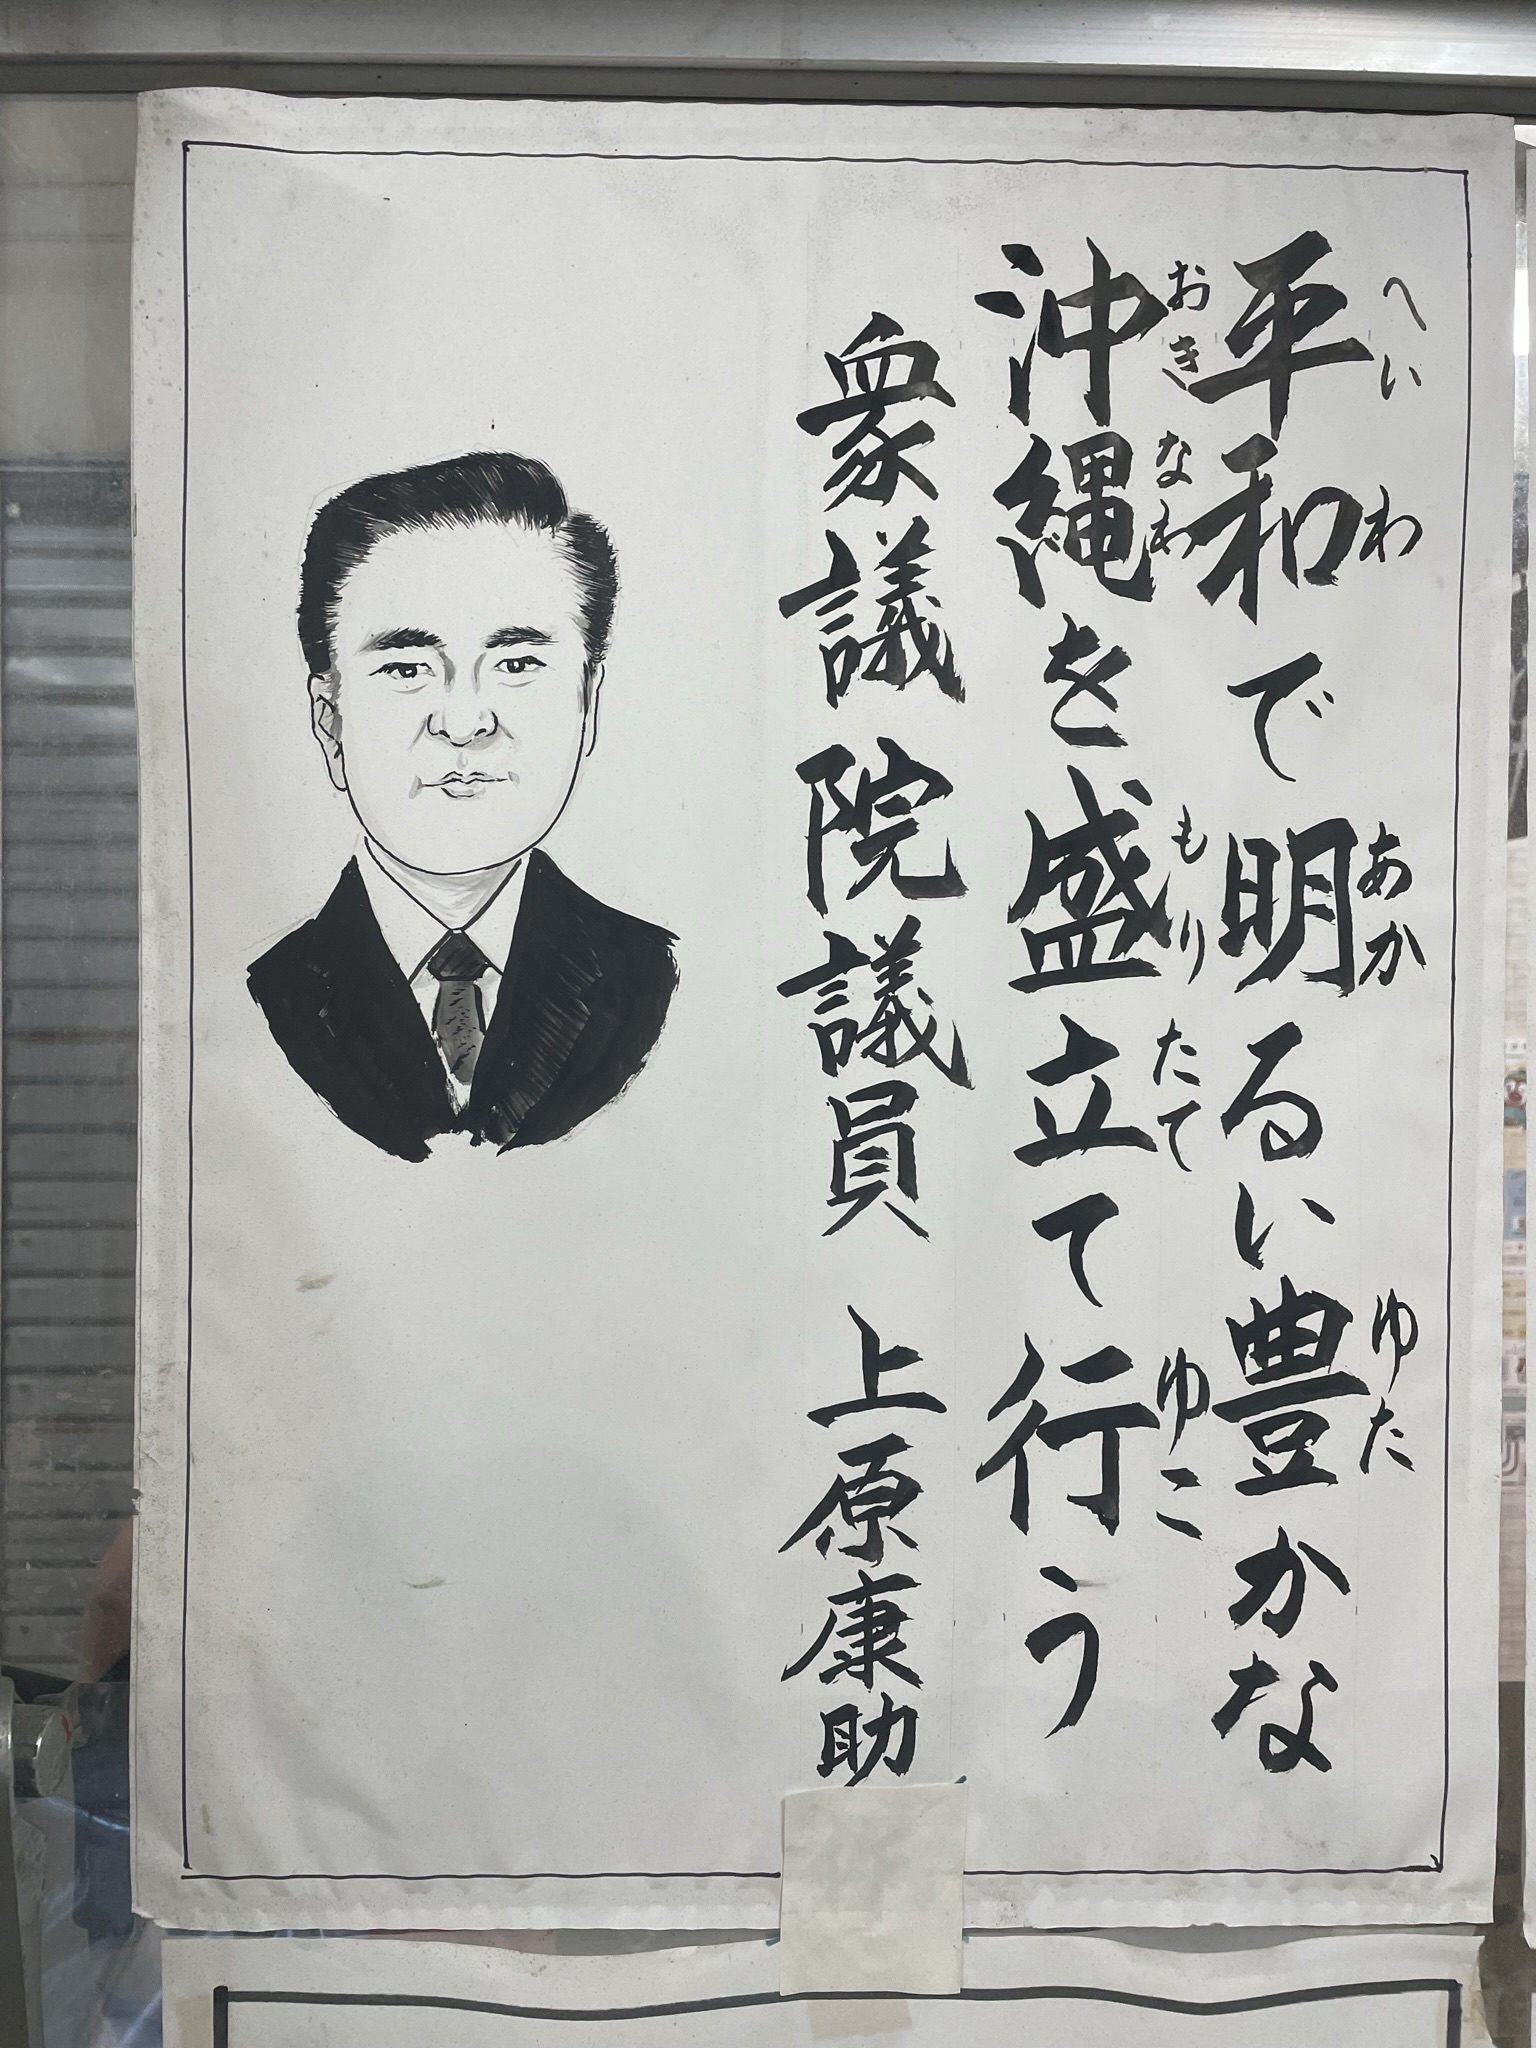 平和で明るい豊かな
へいわ あか ゆた
沖縄を盛立て行う
おきなわ もりたて ゆこ
衆議院議員 上原康助